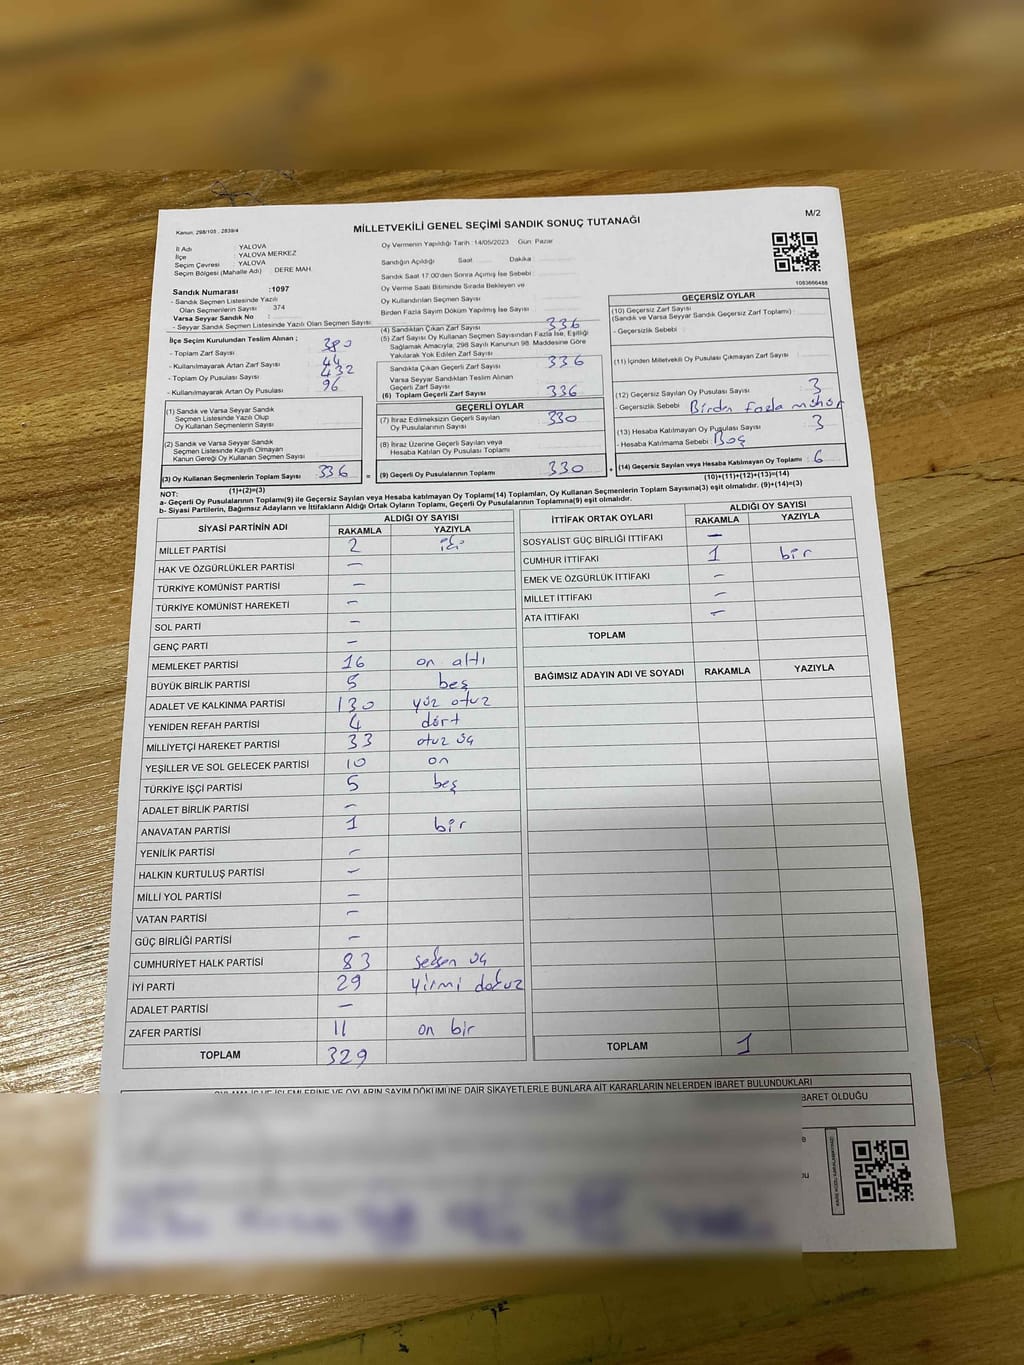 Kanun: 298/105 , 2839/4
MİLLETVEKİLİ GENEL SEÇİMİ SANDIK SONUÇ TUTANAĞI
M/2
İl Adı : YALOVA
İlçe : YALOVA MERKEZ
Seçim Çevresi : YALOVA
Seçim Bölgesi (Mahalle Adı) : DERE MAH.
Oy Vermenin Yapıldığı Tarih : 14/05/2023 Gün: Pazar
Sandığın Açıldığı Saat: Dakika :
Sandık Saat 17:00'den Sonra Açımış İse Sebebi :
Oy Verme Saati Bitiminde Sırada Bekleyen ve
Oy Kullandırılan Seçmen Sayısı
Birden Fazla Sayım Döküm Yapılmış İse Sayısı
1083666488
Sandık Numarası :1097
- Sandık Seçmen Listesinde Yazılı
Olan Seçmenlerin Sayısı 374
Varsa Seyyar Sandık No :
- Seyyar Sandık Seçmen Listesinde Yazılı Olan Seçmen Sayısı:
İlçe Seçim Kurulundan Teslim Alınan ;
- Toplam Zarf Sayısı : 380
- Kullanılmayarak Artan Zarf Sayısı : 44
- Toplam Oy Pusulası Sayısı : 432
- Kullanılmayarak Artan Oy Pusulası : 96
(1) Sandık ve Varsa Seyyar Sandık
Seçmen Listesinde Yazılı Olup
Oy Kullanan Seçmenlerin Sayısı
(2) Sandık ve Varsa Seyyar Sandık
Seçmen Listesinde Kayıtlı Olmayan
Kanun Gereği Oy Kullanan Seçmen Sayısı
(3) Oy Kullanan Seçmenlerin Toplam Sayısı 336
(1)+(2)=(3)
(4) Sandıktan Çıkan Zarf Sayısı 336
(5) Zarf Sayısı Oy Kullanan Seçmen Sayısından Fazla İse, Eşitliği
Sağlamak Amacıyla, 298 Sayılı Kanunun 98. Maddesine Göre
Yakılarak Yok Edilen Zarf Sayısı
Sandıkta Çıkan Geçerli Zarf Sayısı 336
Varsa Seyyar Sandıktan Teslim Alınan
Geçerli Zarf Sayısı
(6) Toplam Geçerli Zarf Sayısı 336
GEÇERLİ OYLAR
(7) İtiraz Edilmeksizin Geçerli Sayılan
Oy Pusulalarının Sayısı 330
(8) İtiraz Üzerine Geçerli Sayılan veya
Hesaba Katılan Oy Pusulası Toplamı
= (9) Geçerli Oy Pusulalarının Toplamı 330 +
GEÇERSİZ OYLAR
(10) Geçersiz Zarf Sayısı
(Sandık ve Varsa Seyyar Sandık Geçersiz Zarf Toplamı) :
- Geçersizlik Sebebi :
(11) İçinden Milletvekili Oy Pusulası Çıkmayan Zarf Sayısı
(12) Geçersiz Sayılan Oy Pusulası Sayısı : 3
- Geçersizlik Sebebi : Birden fazla mühür
(13) Hesaba Katılmayan Oy Pusulası Sayısı : 3
- Hesaba Katılmama Sebebi : Boş
(14) Geçersiz Sayılan veya Hesaba Katılmayan Oy Toplamı : 6
(10)+(11)+(12)+(13)=(14)
NOT:
a- Geçerli Oy Pusulalarının Toplamı(9) ile Geçersiz Sayılan veya Hesaba katılmayan Oy Toplamı(14) Toplamları, Oy Kullanan Seçmenlerin Toplam Sayısına(3) eşit olmalıdır. (9)+(14)=(3)
b- Siyasi Partilerin, Bağımsız Adayların ve İttifakların Aldığı Ortak Oyların Toplamı, Geçerli Oy Pusulalarının Toplamına(9) eşit olmalıdır.
SİYASİ PARTİNİN ADI ALDIĞI OY SAYISI
RAKAMLA YAZIYLA
MİLLET PARTİSİ 2 iki
HAK VE ÖZGÜRLÜKLER PARTİSİ —
TÜRKİYE KOMÜNİST PARTİSİ —
TÜRKİYE KOMÜNİST HAREKETİ —
SOL PARTİ —
GENÇ PARTİ —
MEMLEKET PARTİSİ 16 on altı
BÜYÜK BİRLİK PARTİSİ 5 beş
ADALET VE KALKINMA PARTİSİ 130 yüz otuz
YENİDEN REFAH PARTİSİ 4 dört
MİLLİYETÇİ HAREKET PARTİSİ 33 otuz üç
YEŞİLLER VE SOL GELECEK PARTİSİ 10 on
TÜRKİYE İŞÇİ PARTİSİ 5 beş
ADALET BİRLİK PARTİSİ —
ANAVATAN PARTİSİ 1 bir
YENİLİK PARTİSİ —
HALKIN KURTULUŞ PARTİSİ —
MİLLİ YOL PARTİSİ —
VATAN PARTİSİ —
GÜÇ BİRLİĞİ PARTİSİ —
CUMHURİYET HALK PARTİSİ 83 seksen üç
İYİ PARTİ 29 yirmi dokuz
ADALET PARTİSİ —
ZAFER PARTİSİ 11 on bir
TOPLAM 329
İTTİFAK ORTAK OYLARI ALDIĞI OY SAYISI
RAKAMLA YAZIYLA
SOSYALİST GÜÇ BİRLİĞİ İTTİFAKI —
CUMHUR İTTİFAKI 1 bir
EMEK VE ÖZGÜRLÜK İTTİFAKI —
MİLLET İTTİFAKI —
ATA İTTİFAKI —
TOPLAM
BAĞIMSIZ ADAYIN ADI VE SOYADI RAKAMLA YAZIYLA
TOPLAM 1
OYLAMA İŞ VE İŞLEMLERİNE VE OYLARIN SAYIM DÖKÜMÜNE DAİR ŞİKAYETLERLE BUNLARA AİT KARARLARIN NELERDEN İBARET BULUNDUKLARI
BARET OLDUĞU